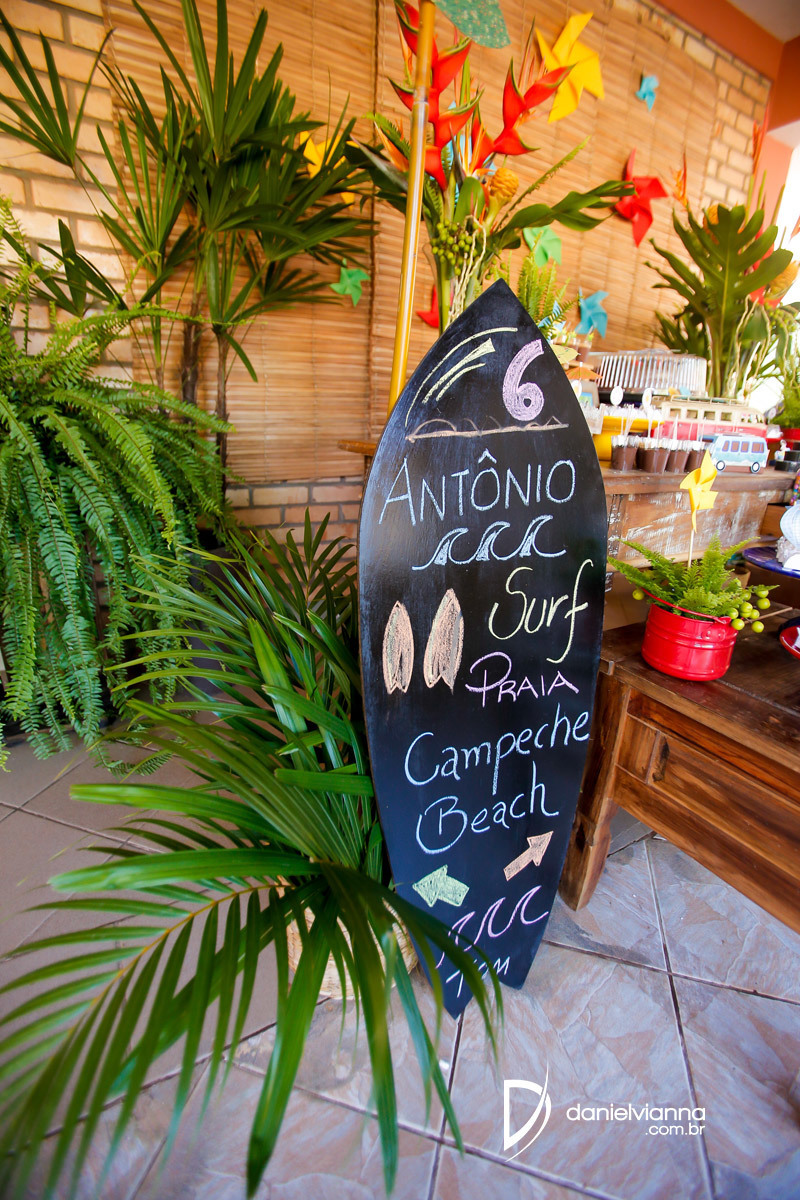 6
ANTÔNIO
Surf
PRAIA
Campeche
Beach
danielvianna
.com.br